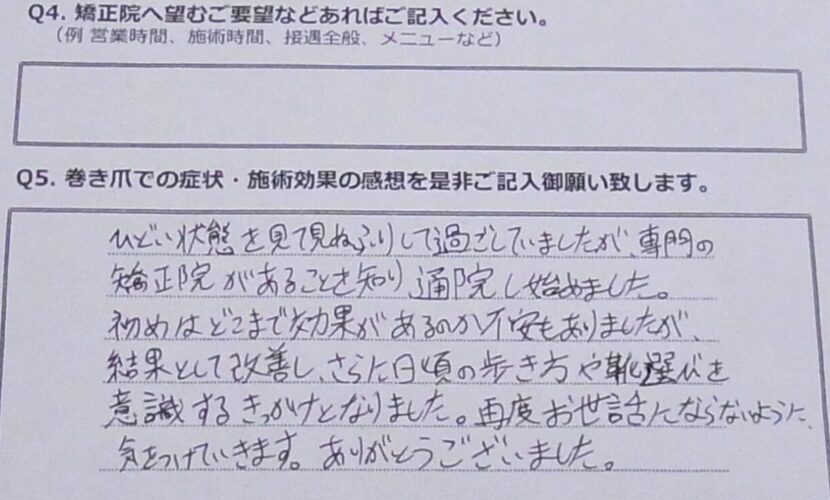 Q4. 矯正院へ望むご要望などあればご記入ください。
（例 営業時間、施術時間、接遇全般、メニューなど）
Q5. 巻き爪での症状・施術効果の感想を是非ご記入御願い致します。
ひどい状態を見て見ぬふりして過ごしていましたが、専門の
矯正院があることを知り、通院し始めました。
初めはどこまで効果があるのか不安もありましたが、
結果として改善し、さらに日頃の歩き方や靴選びを
意識するきっかけとなりました。再度お世話にならないように、
気をつけていきます。ありがとうございました。